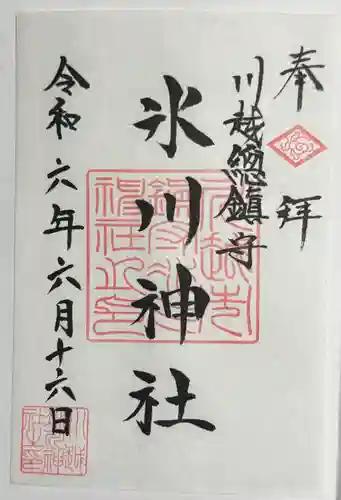 奉拝
川越總鎮守
氷川神社
令和六年六月十六日